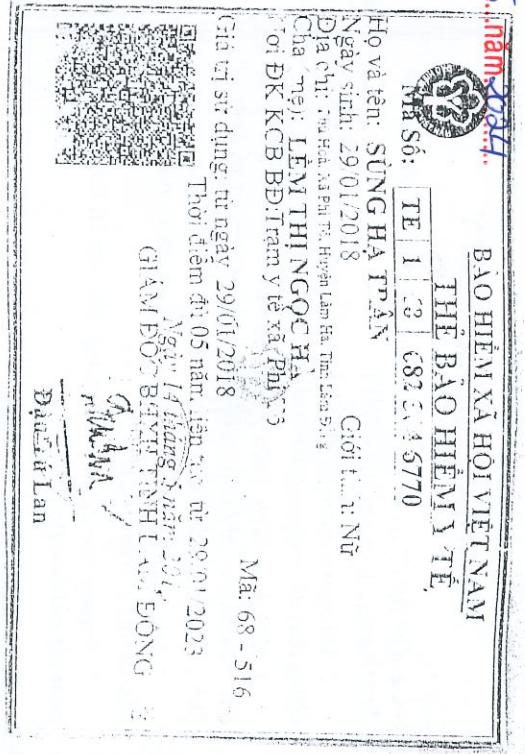 năm 2024
BẢO HIỂM XÃ HỘI VIỆT NAM
THẺ BẢO HIỂM Y TẾ
Mã Số: TE 1 5770
Họ và tên: SÙNG HẠ TRÂN
Ngày sinh: 29/01/2018 Giới Nữ
Địa chỉ: Xã Phi Tô, Huyện Lâm Hà, Tỉnh Lâm Đồng
Cha mẹ): LÊM THỊ NGỌC HÀ
ĐK KCB BĐ: Trạm y tế xã Phi Mã: 68 - 516
Giá trị sử dụng: từ ngày 29/01/2018
Thời điểm đủ 05 năm liên tục từ 29/01/2023
Ngày 14 tháng năm
GIÁM ĐỐC BHXH TỈNH LÂM ĐỒNG
Lan